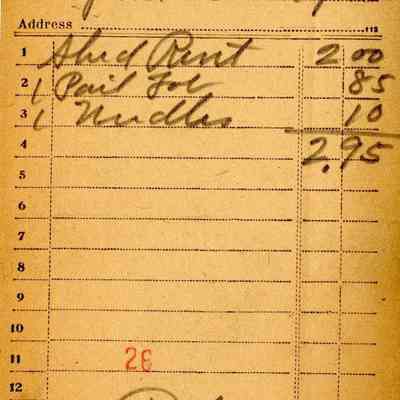 Address
1 Shed Rent 2 00
2 1 Pail 85
3 1 Needles 10
4 2.95
5
6
7
8
9
10
11 26
12